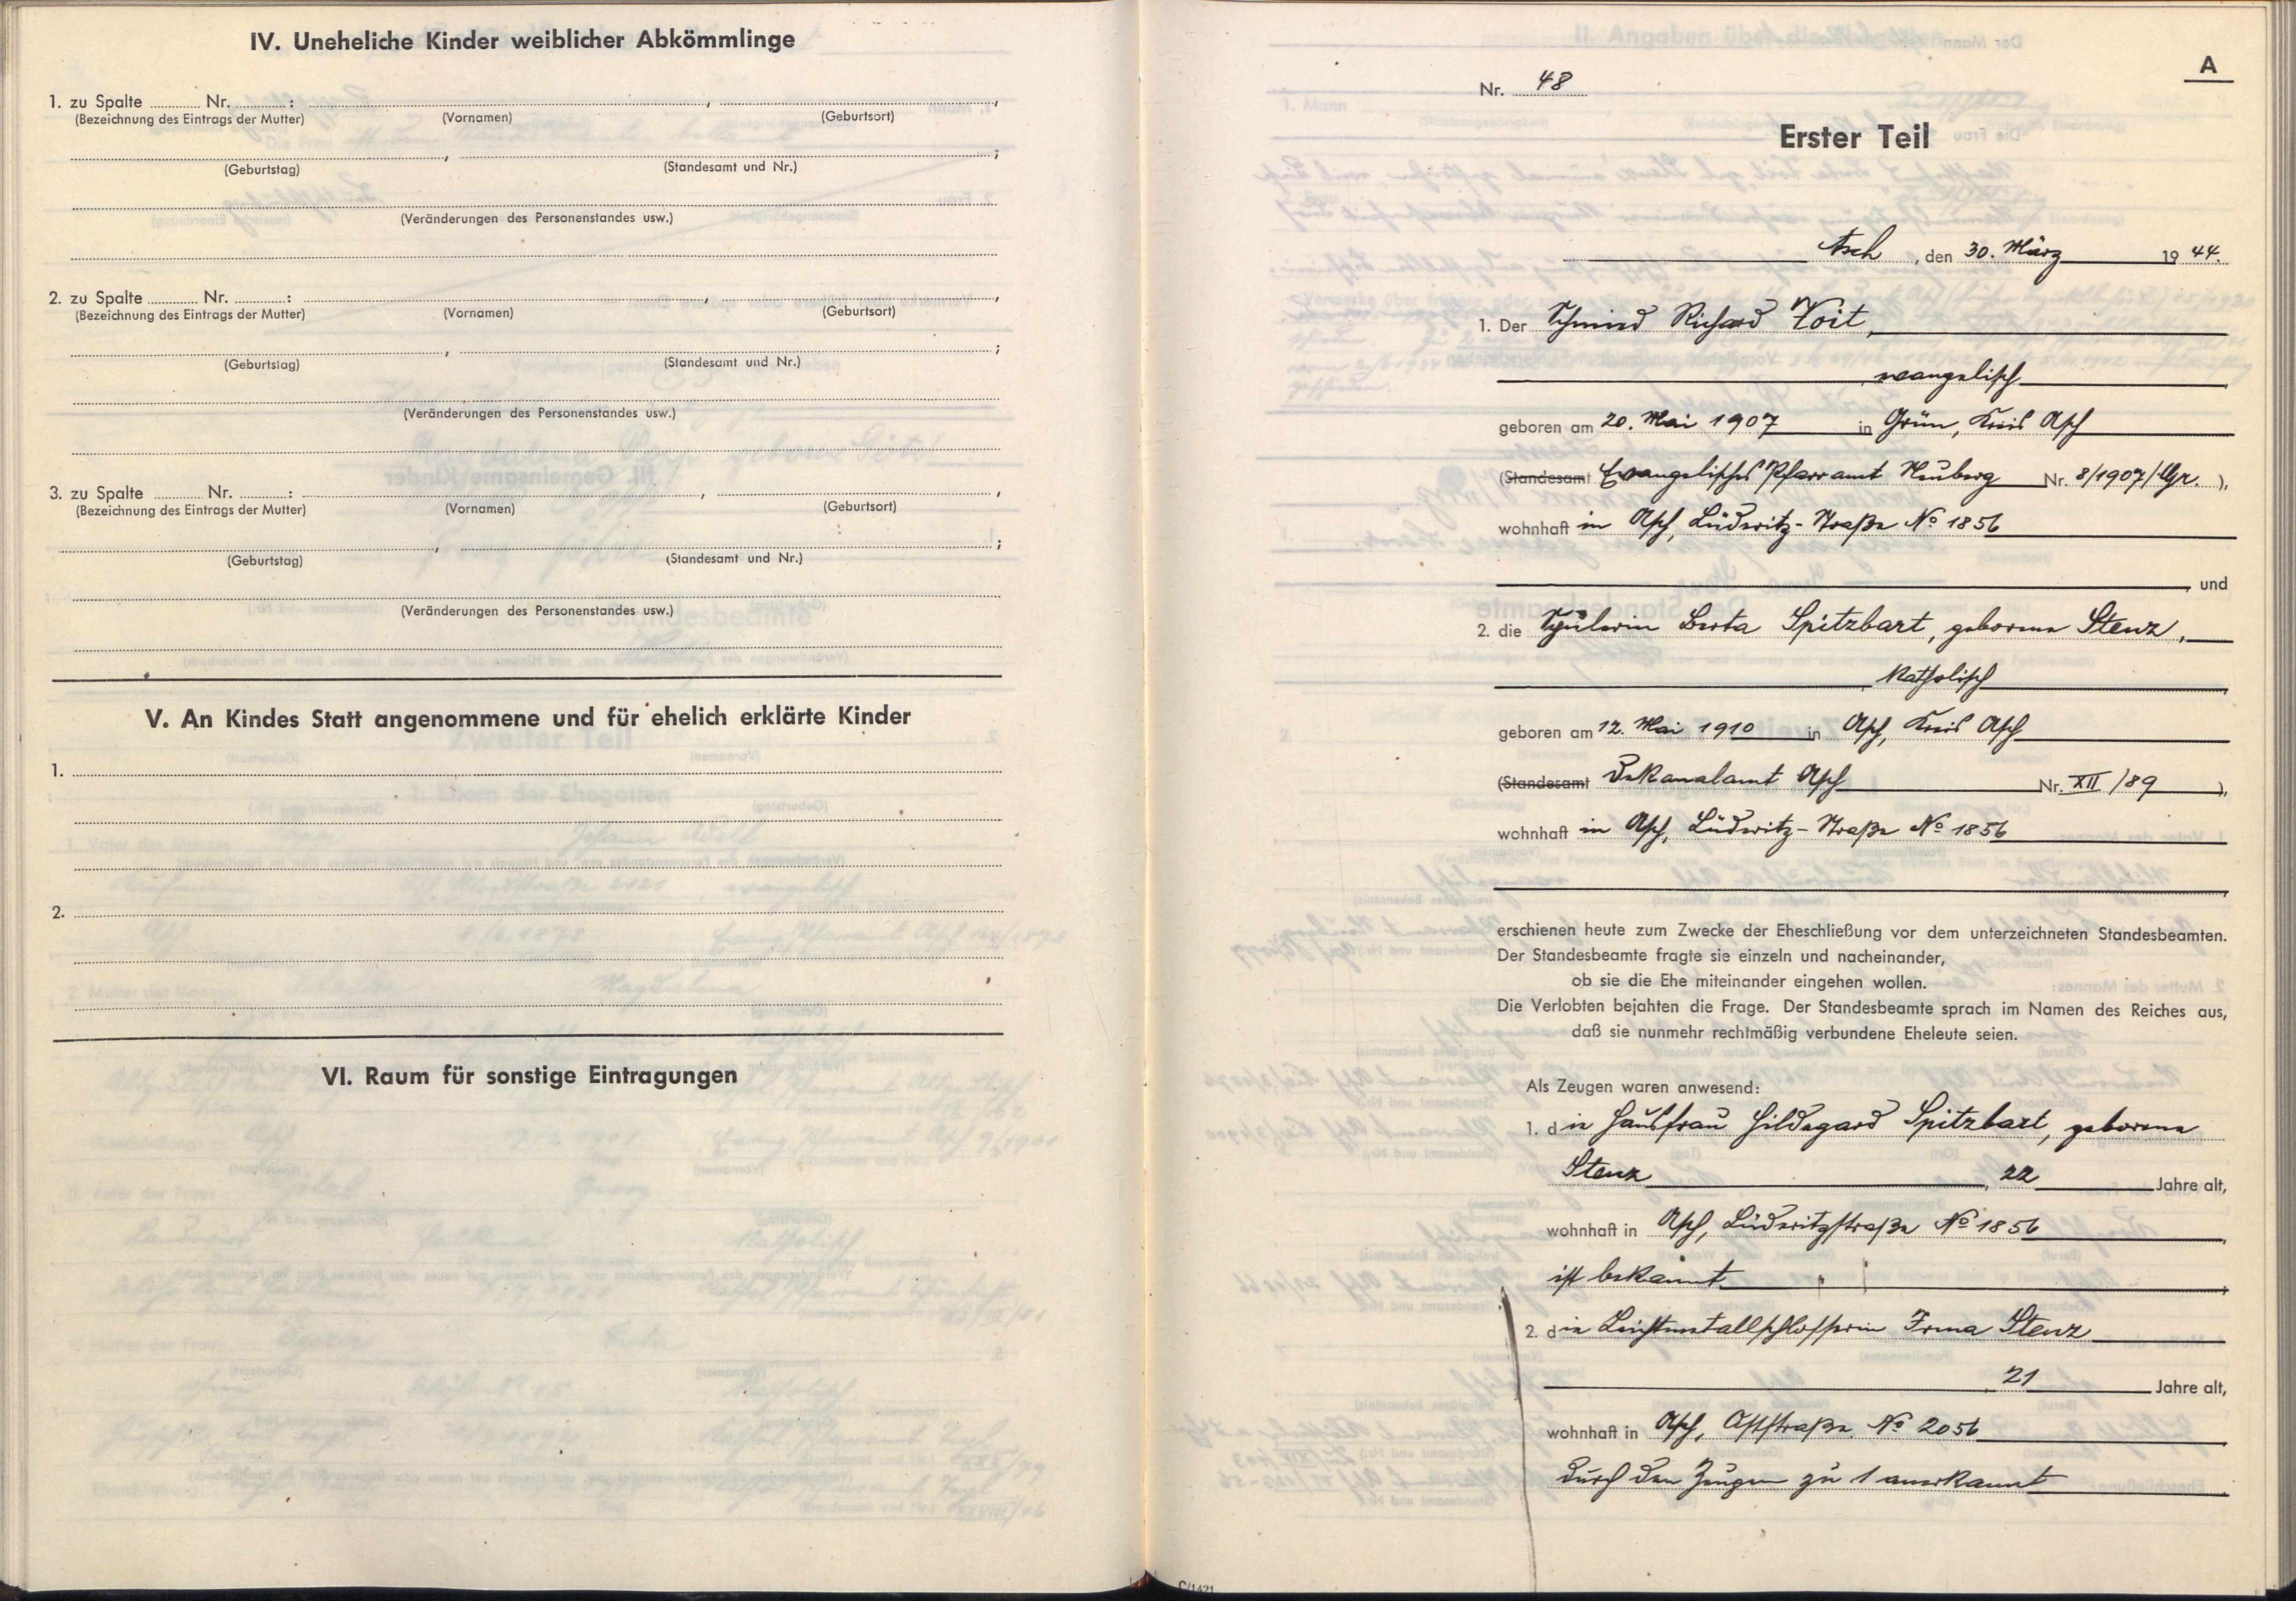 IV. Uneheliche Kinder weiblicher Abkömmlinge
1. zu Spalte Nr. : , ,
(Bezeichnung des Eintrags der Mutter) (Vornamen) (Geburtsort)
, ;
(Geburtstag) (Standesamt und Nr.)
(Veränderungen des Personenstandes usw.)
2. zu Spalte Nr. : , ,
(Bezeichnung des Eintrags der Mutter) (Vornamen) (Geburtsort)
, ;
(Geburtstag) (Standesamt und Nr.)
(Veränderungen des Personenstandes usw.)
3. zu Spalte Nr. : , ,
(Bezeichnung des Eintrags der Mutter) (Vornamen) (Geburtsort)
, ;
(Geburtstag) (Standesamt und Nr.)
(Veränderungen des Personenstandes usw.)
V. An Kindes Statt angenommene und für ehelich erklärte Kinder
1.
2.
VI. Raum für sonstige Eintragungen
A
Nr. 48
Erster Teil
Asch, den 30. März 1944.
1. Der Schmied Richard Voit,
evangelisch,
geboren am 20. Mai 1907 in Grün, Kreis Asch
(Standesamt Evangelisches Pfarramt Neuberg Nr. 8/1907/Gr.),
wohnhaft in Asch, Lüderitz-Straße No 1856
, und
2. die Spulerin Berta Spitzbart, geborene Stenz,
katholisch,
geboren am 12. Mai 1910 in Asch, Kreis Asch
(Standesamt Dekanalamt Asch Nr. XII/89),
wohnhaft in Asch, Lüderitz-Straße No 1856
erschienen heute zum Zwecke der Eheschließung vor dem unterzeichneten Standesbeamten.
Der Standesbeamte fragte sie einzeln und nacheinander,
ob sie die Ehe miteinander eingehen wollen.
Die Verlobten bejahten die Frage. Der Standesbeamte sprach im Namen des Reiches aus,
daß sie nunmehr rechtmäßig verbundene Eheleute seien.
Als Zeugen waren anwesend:
1. die Hausfrau Hildegard Spitzbart, geborene
Stenz, 22 Jahre alt,
wohnhaft in Asch, Lüderitzstraße No 1856,
ist bekannt,
2. die Leichtmetallschlosserin Irma Stenz
, 21 Jahre alt,
wohnhaft in Asch, Oststraße No 2056
durch den Zeugen zu 1 anerkannt
C/1421